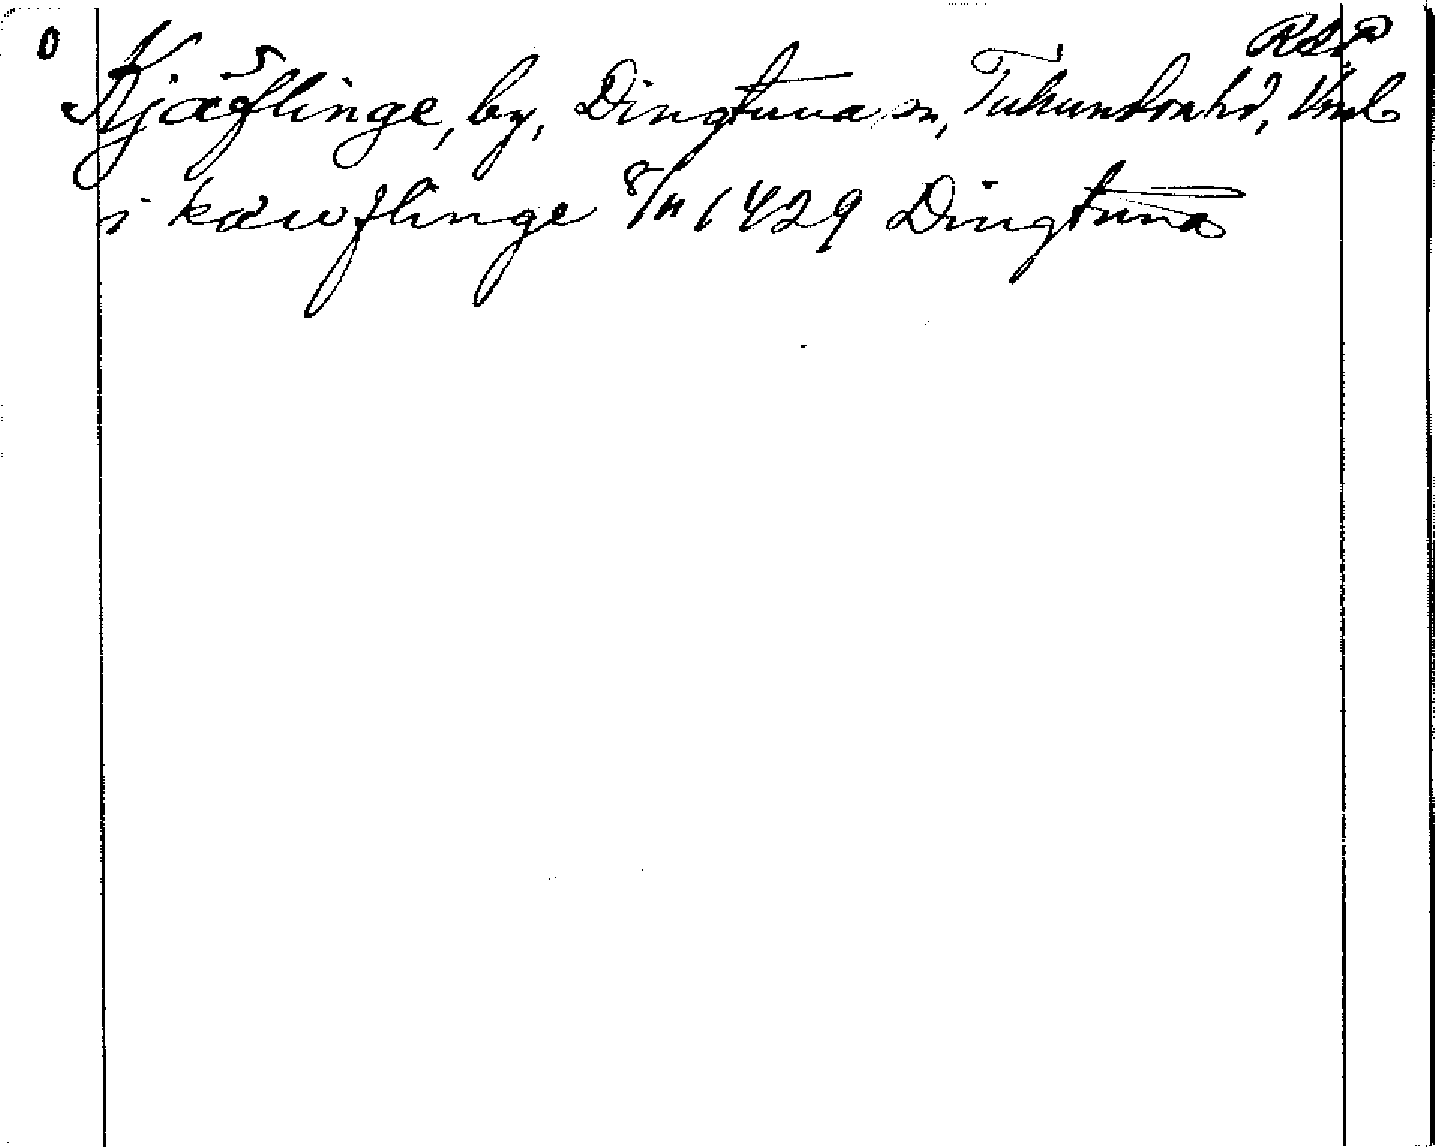 0
RAP
Kjäflinge, by, Dingtuna sn, Tuhundra hd, Vml
i käwflinge 8/11 1429 Dingtuna